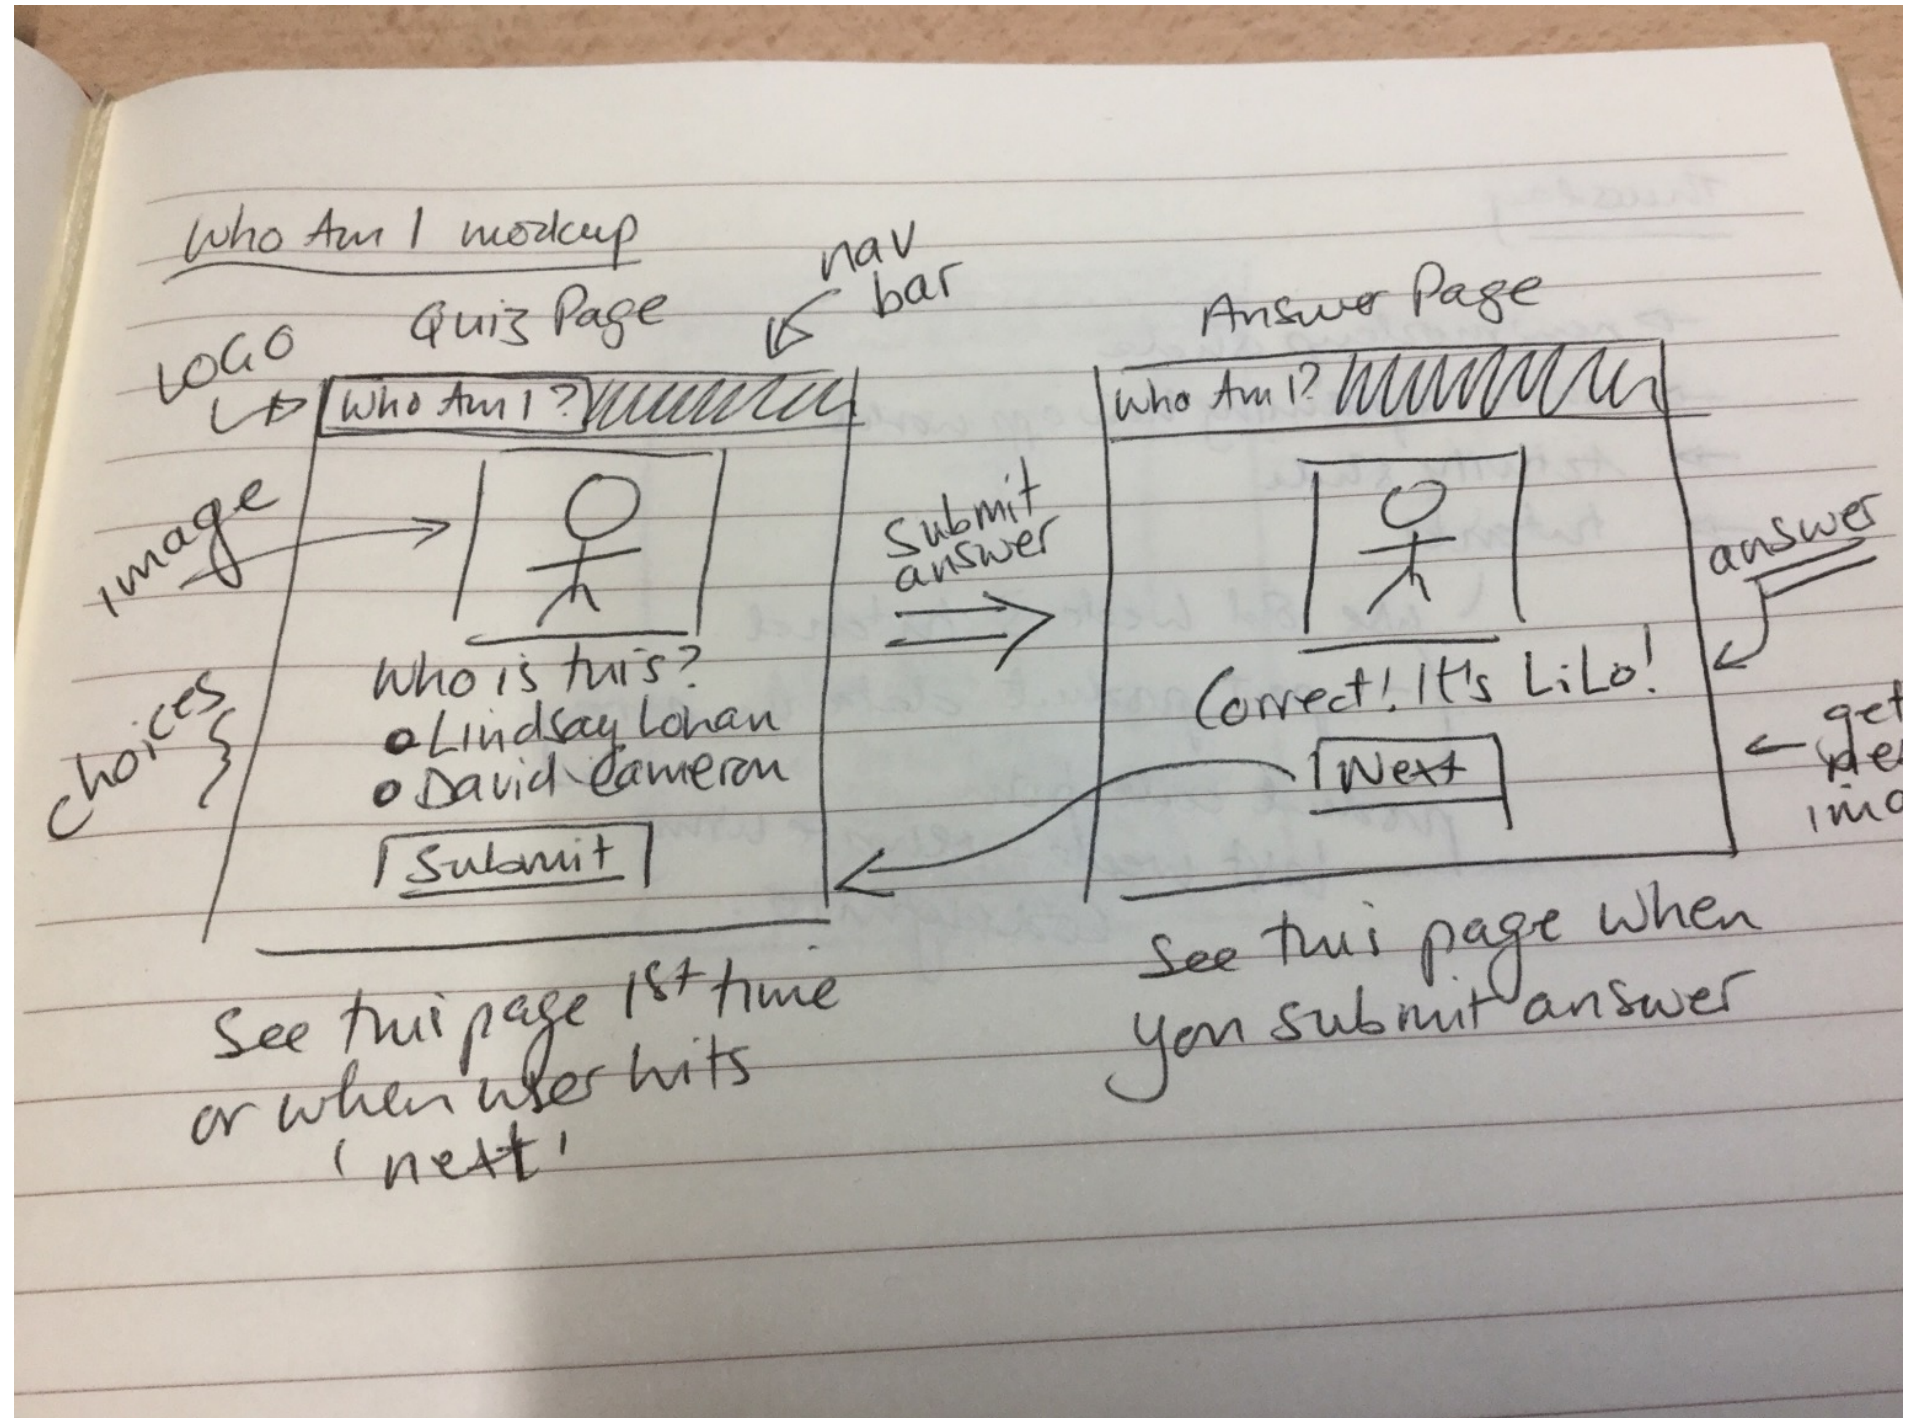 Who Am I mockup
Quiz Page
nav
bar
LOGO
Who Am I?
image
Who is this?
Lindsay Lohan
David Cameron
choices
Submit
See this page 1st time
or when user hits
'next'
submit
answer
Answer Page
Who Am I?
answer
Correct! It's LiLo!
Next
get
See this page when
you submit answer